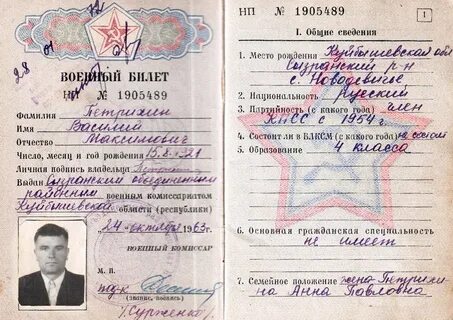 ВОЕННЫЙ БИЛЕТ
НП № 1905489
Фамилия Петрихин
Имя Василий
Отчество Максимович
Число, месяц и год рождения
Личная подпись владельца
Выдан Сызранским объединенным
районным военным комиссариатом
Куйбышевской области (республики)
24 октября 1963 г.
ВОЕННЫЙ КОМИССАР
М. П.
п/п-к
(звание, подпись)
НП № 1905489
1
I. Общие сведения
1. Место рождения Куйбышевская обл
Сызранский р-н
с. Новодевичье
2. Национальность Русский
3. Партийность (с какого года) член
КПСС с 1954 г.
4. Состоит ли в ВЛКСМ (с какого года) не состоит
5. Образование 4 класса
6. Основная гражданская специальность
не имеет
7. Семейное положение жена Петрихи-
на Анна Павловна